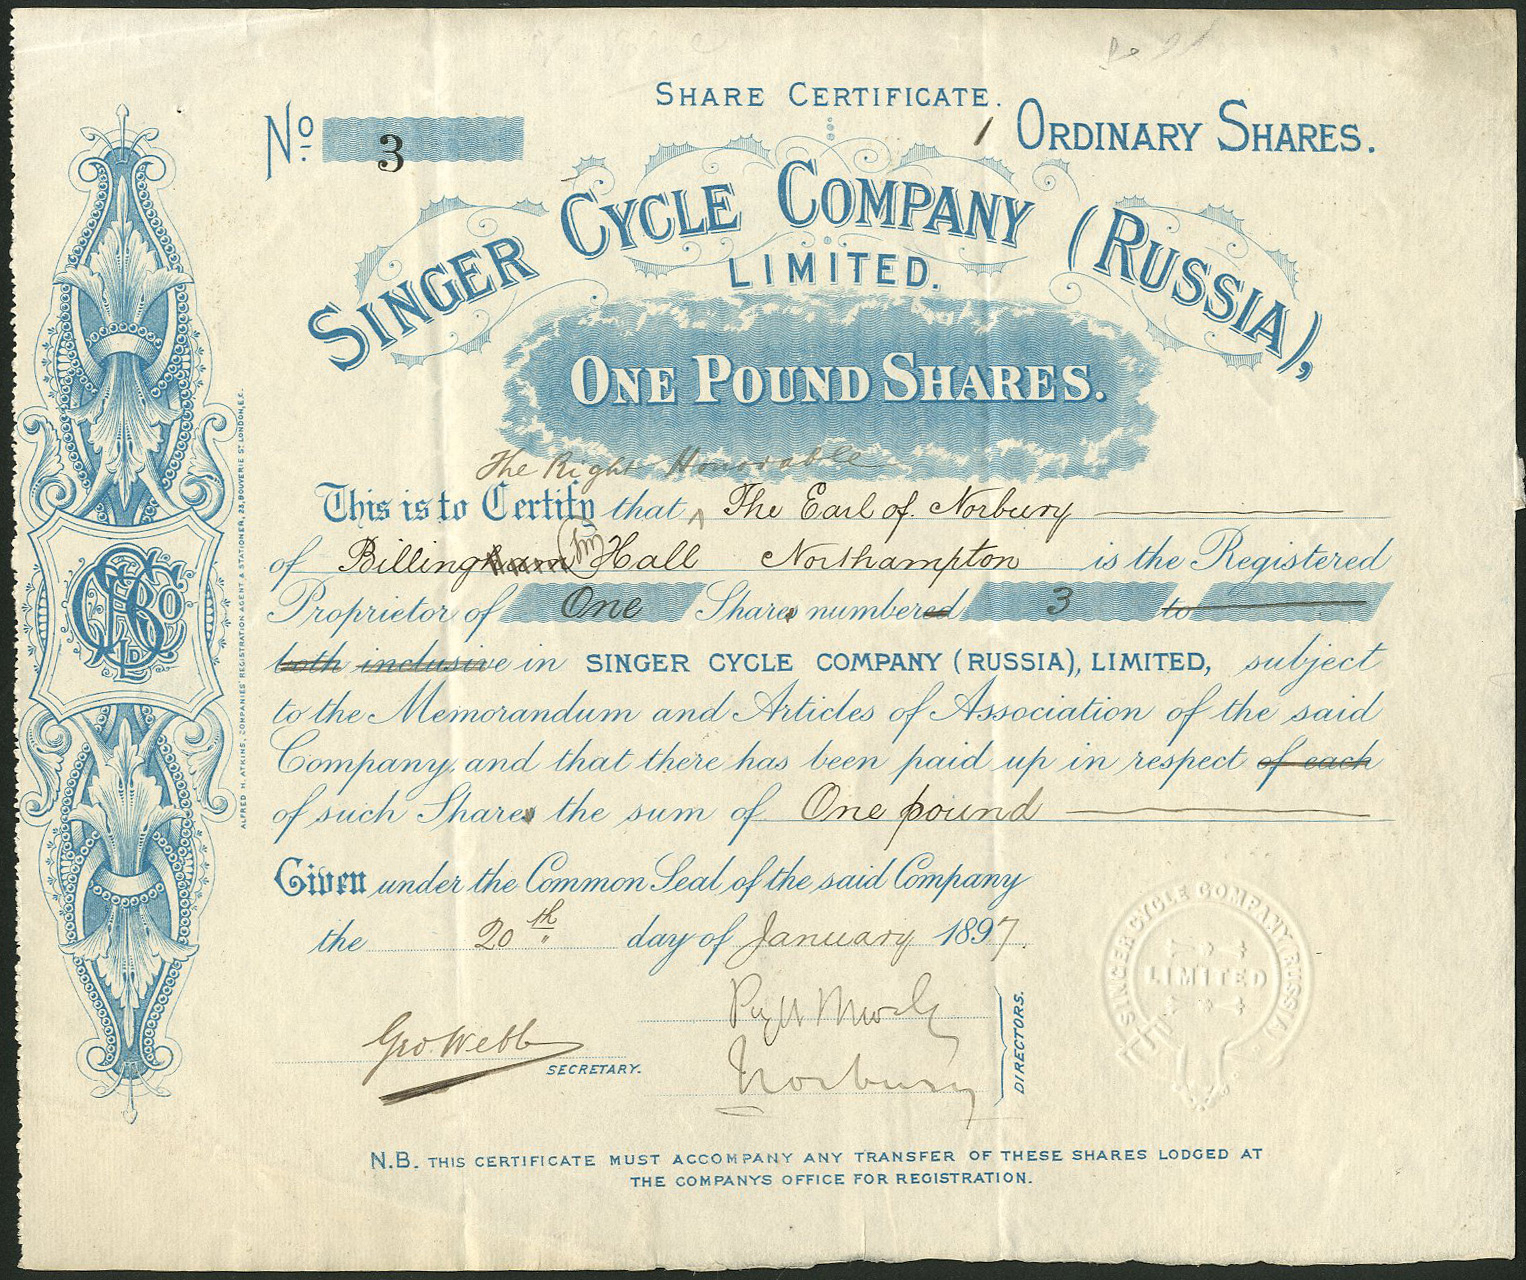 SHARE CERTIFICATE.
No 3
1 ORDINARY SHARES.
SINGER CYCLE COMPANY (RUSSIA),
LIMITED.
ONE POUND SHARES.
The Right Honorable
This is to Certify that ^ The Earl of Norbury
of Billingham Hall Northampton is the Registered
Proprietor of One Shares numbered 3 to
both inclusive in SINGER CYCLE COMPANY (RUSSIA), LIMITED, subject
to the Memorandum and Articles of Association of the said
Company, and that there has been paid up in respect of each
of such Shares the sum of One pound
Given under the Common Seal of the said Company
the 20th day of January 1897.
Geo Webb
SECRETARY.
Norbury
DIRECTORS.
SINGER CYCLE COMPANY RUSSIA
LIMITED
N.B. THIS CERTIFICATE MUST ACCOMPANY ANY TRANSFER OF THESE SHARES LODGED AT
THE COMPANYS OFFICE FOR REGISTRATION.
ALFRED H. ATKINS, COMPANIES' REGISTRATION AGENT & STATIONER, 23, BOUVERIE ST LONDON, E.C.